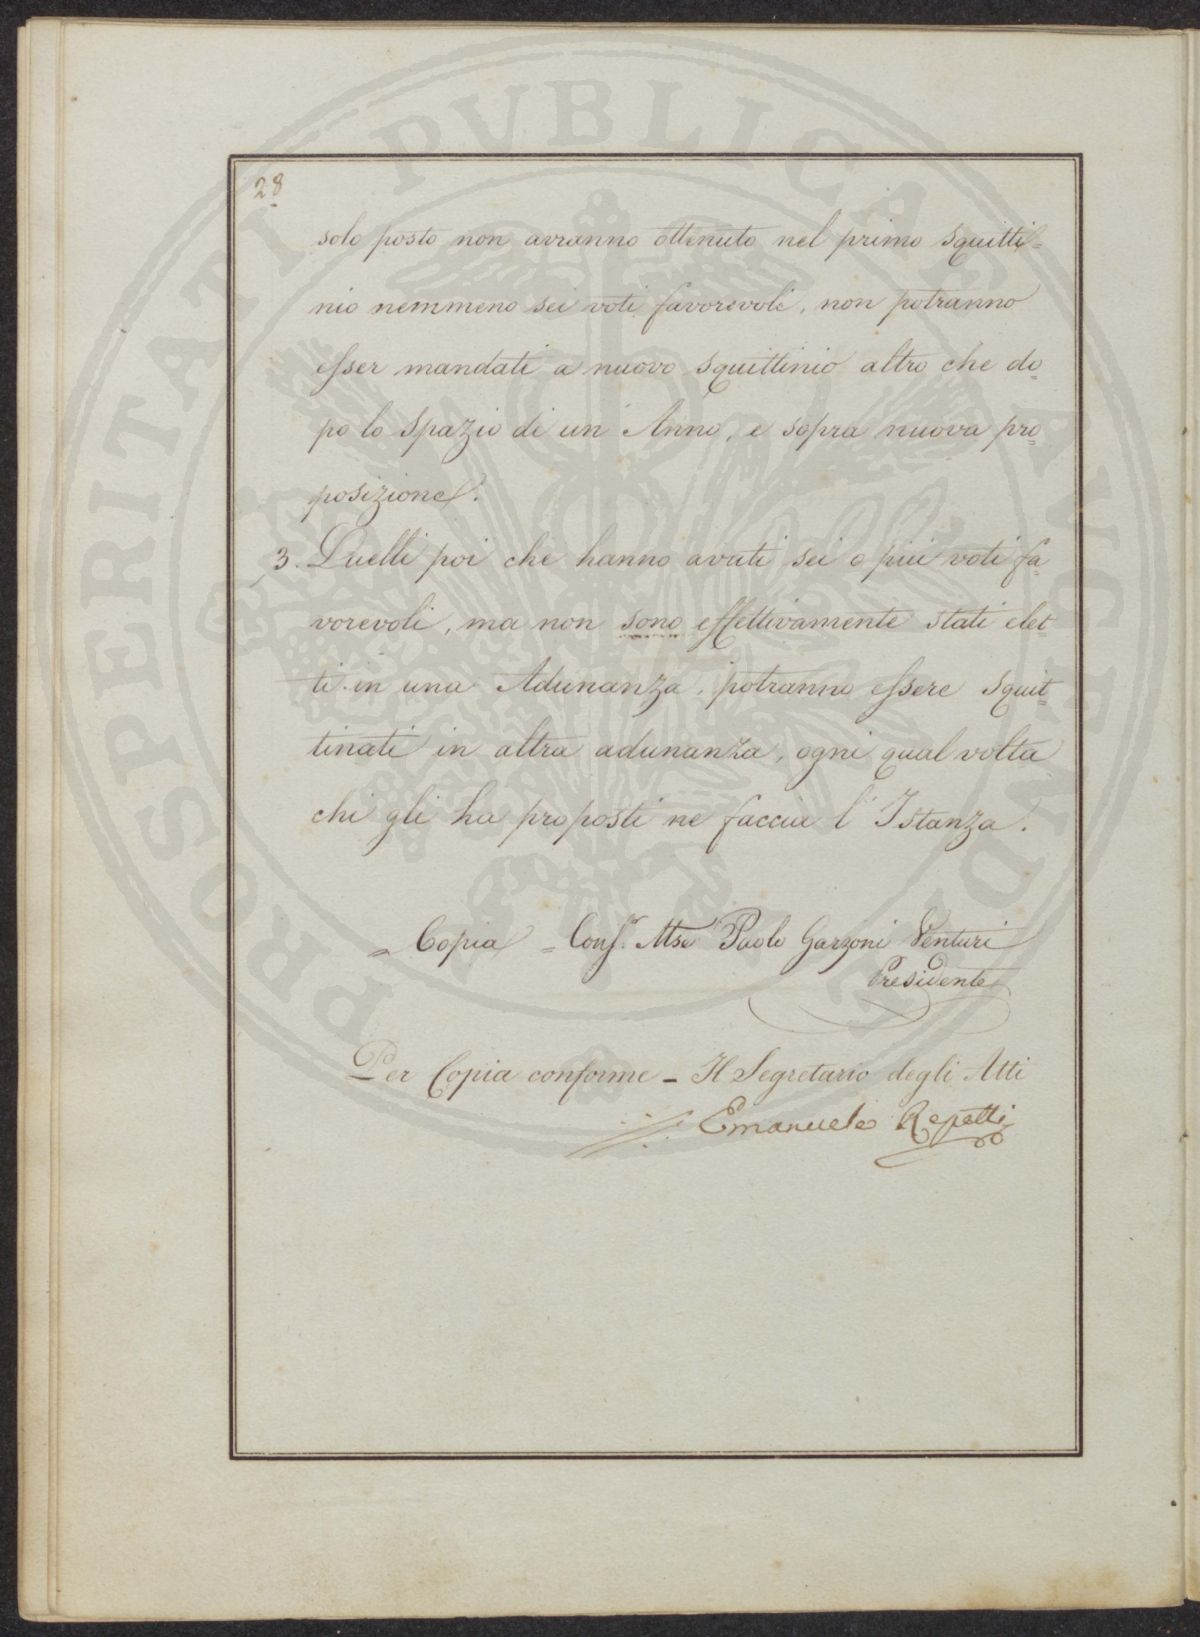 28
solo posto non avranno ottenuto nel primo squitti=
nio nemmeno sei voti favorevoli, non potranno
esser mandati a nuovo squittinio altro che do=
po lo Spazio di un' Anno, e sopra nuova pro=
posizione.
3. Quelli poi che hanno avuti sei o piui voti fa=
vorevoli, ma non sono effettivamente stati elet=
ti in una Adunanza, potranno essere squit=
tinati in altra adunanza, ogni qual volta
chi gli ha proposti ne faccia l'Istanza.
= Copia = Cons.r Mse Paolo Garzoni Venturi
Presidente
Per Copia conforme - Il Segretario degli Atti
Emanuele Repetti
PROSPERITATI PVBLICAE AVGENDAE